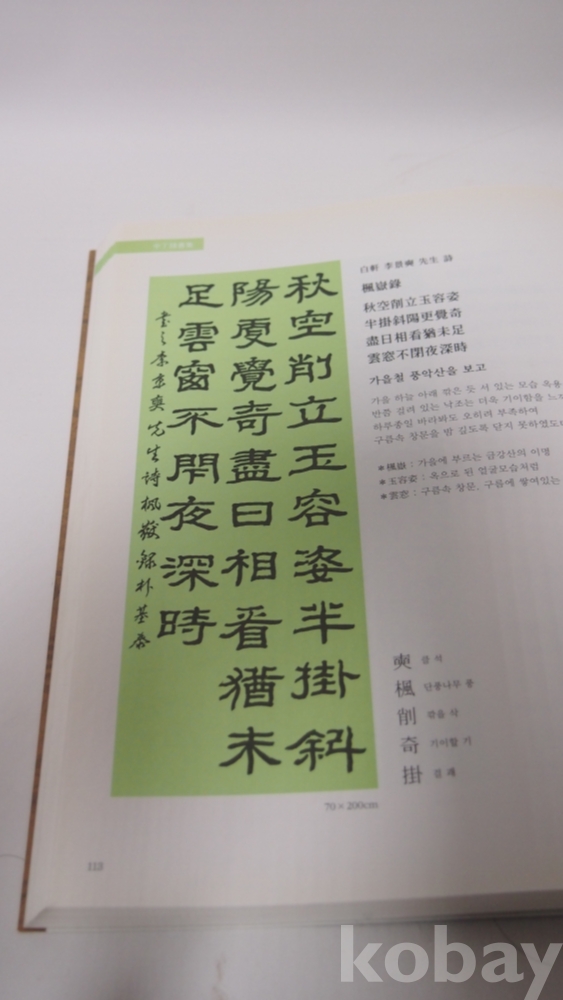 秋空削立玉容姿半掛斜
陽更覺奇盡日相看猶未
足雲窗不閉夜深時
先生詩楓嶽錄朴基
白軒 李景奭 先生 詩
楓嶽錄
秋空削立玉容姿
半掛斜陽更覺奇
盡日相看猶未足
雲窓不閉夜深時
가을철 풍악산을 보고
가을 하늘 아래 깎은 듯 서 있는 모습 옥용
반쯤 걸려 있는 낙조는 더욱 기이함을 느
하루종일 바라봐도 오히려 부족하여
구름속 창문을 밤 깊도록 닫지 못하였도
● 楓嶽 : 가을에 부르는 금강산의 이명
● 玉容姿 : 옥으로 된 얼굴모습처럼
● 雲窓 : 구름속 창문, 구름에 쌓여있는
奭 클 석
楓 단풍나무 풍
削 깎을 삭
奇 기이할 기
掛 걸 괘
70×200cm
113
kobay